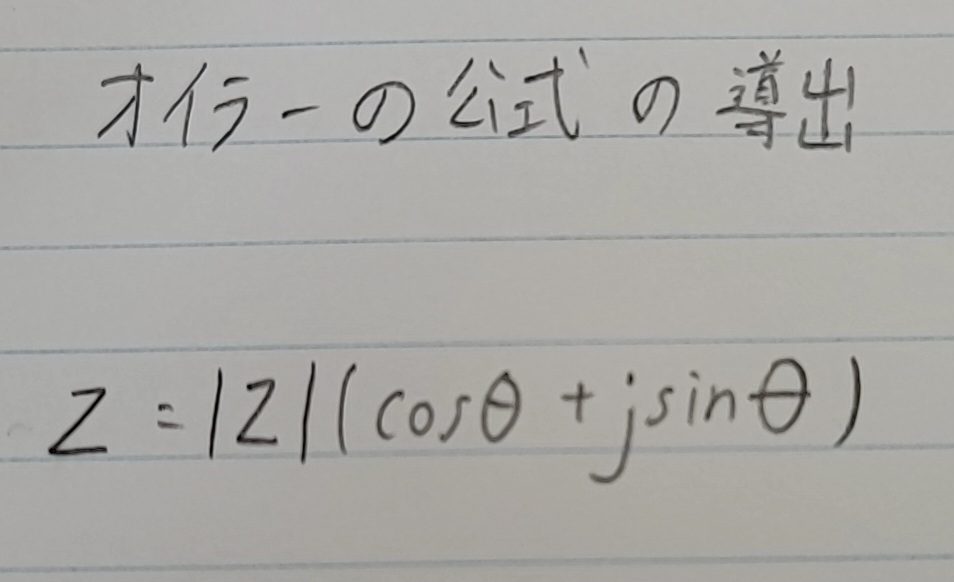 オイラーの公式の導出
Z = |Z|(cosθ + jsinθ)